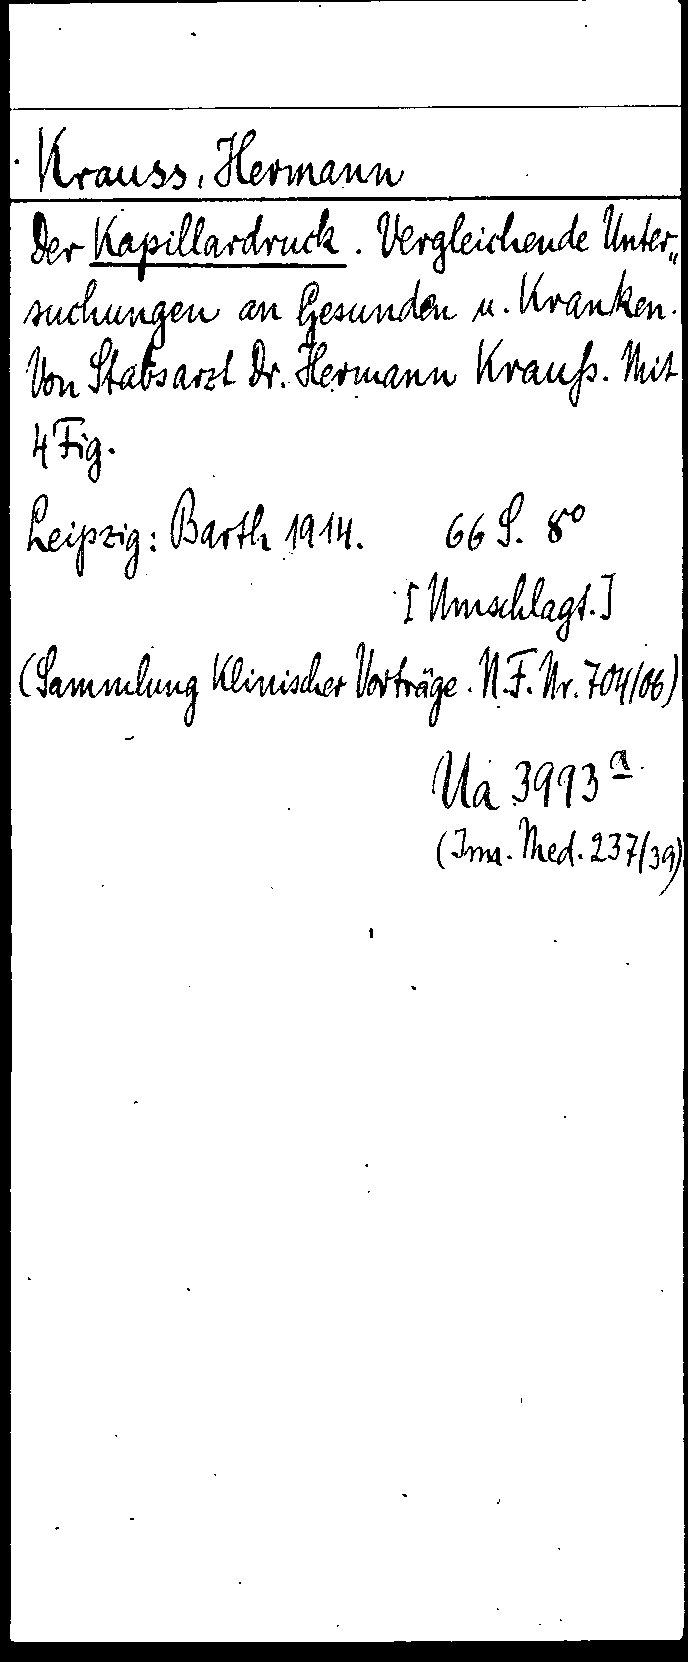 Krauss, Hermann
Der Kapillardruck. Vergleichende Unter„
suchungen an Gesunden u. Kranken.
Von Stabsarzt Dr. Hermann Krauß. Mit
4 Fig.
Leipzig: Barth 1914. 66 S. 8°
[Umschlagt.]
(Sammlung Klinischer Vorträge. N.F. Nr. 704/06)
Ua 3993 a
(Inn. Med. 237/39)